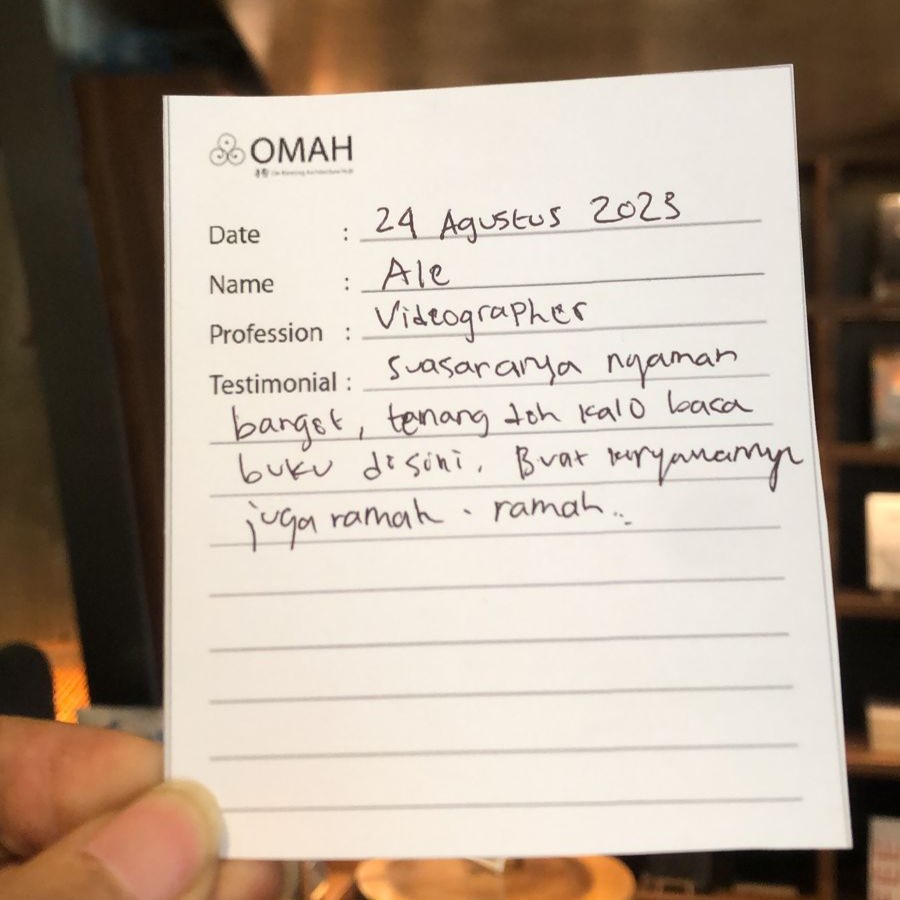 OMAH
Date : 24 Agustus 2023
Name : Ale
Profession : Videographer
Testimonial : suasananya nyaman
banget, tenang doh kalo baca
buku disini. Buat karyawannya
juga ramah - ramah..